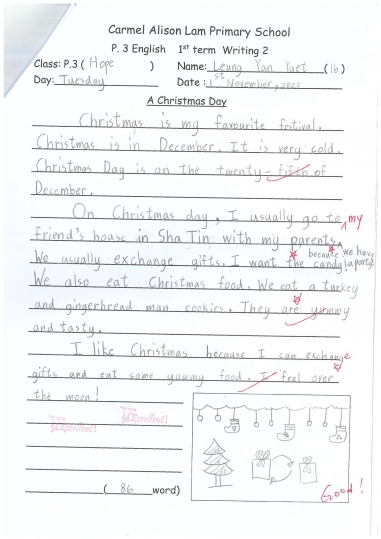 Carmel Alison Lam Primary School
P. 3 English 1st term Writing 2
Class: P.3 ( Hope ) Name: Leung Yan Yuet (16)
Day: Tuesday Date: 1st November, 2025
A Christmas Day
Christmas is my favourite festival.
Christmas is in December. It is very cold.
Christmas Day is on the twenty-fifth of
December.
On Christmas day, I usually go to my
friend's house in Sha Tin with my parents
because we have
We usually exchange gifts. I want the candy! a party.
We also eat Christmas food. We eat a turkey
and gingerbread man cookies. They are yummy
and tasty.
I like Christmas because I can exchange
gifts and eat some yummy food. I feel over
the moon!
Excellent! Excellent!
( 86 word)
Good!